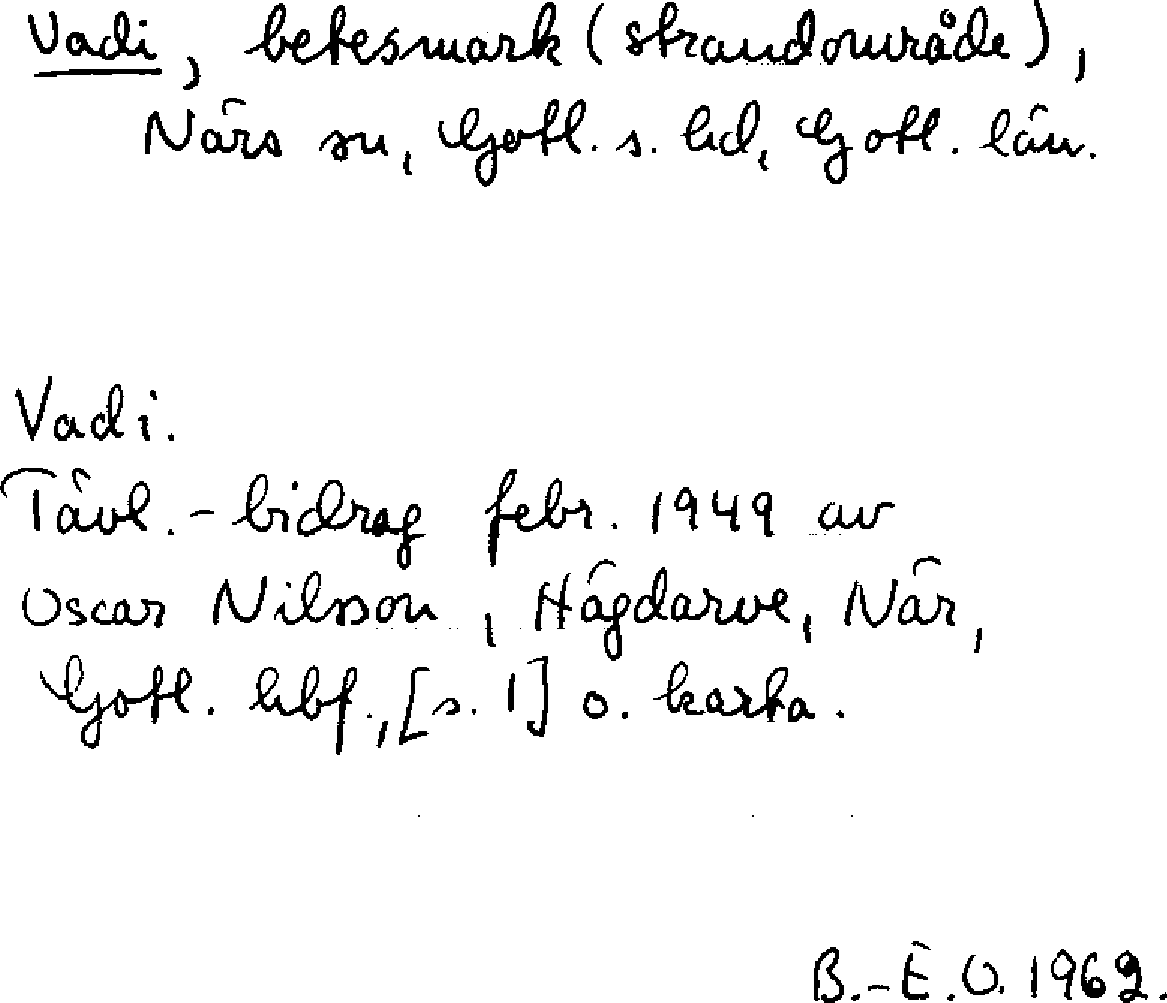 Vadi, betesmark (strandområde),
Närs sn, Gotl. s. hd, Gotl. län.
Vadi.
Tävl.-bidrag febr. 1949 av
Oscar Nilsson, Hägdarve, När,
Gotl. hbf., [s. 1] o. karta.
B.-E.O. 1962.